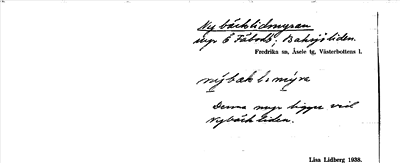 Nybäckslidmyran
myr Ö Fäbodb, Baksjöliden.
Fredrika sn, Åsele tg, Västerbottens l.
nýbäkl:mýra
Denna myr ligger vid
Nybäckliden.
Lisa Lidberg 1938.